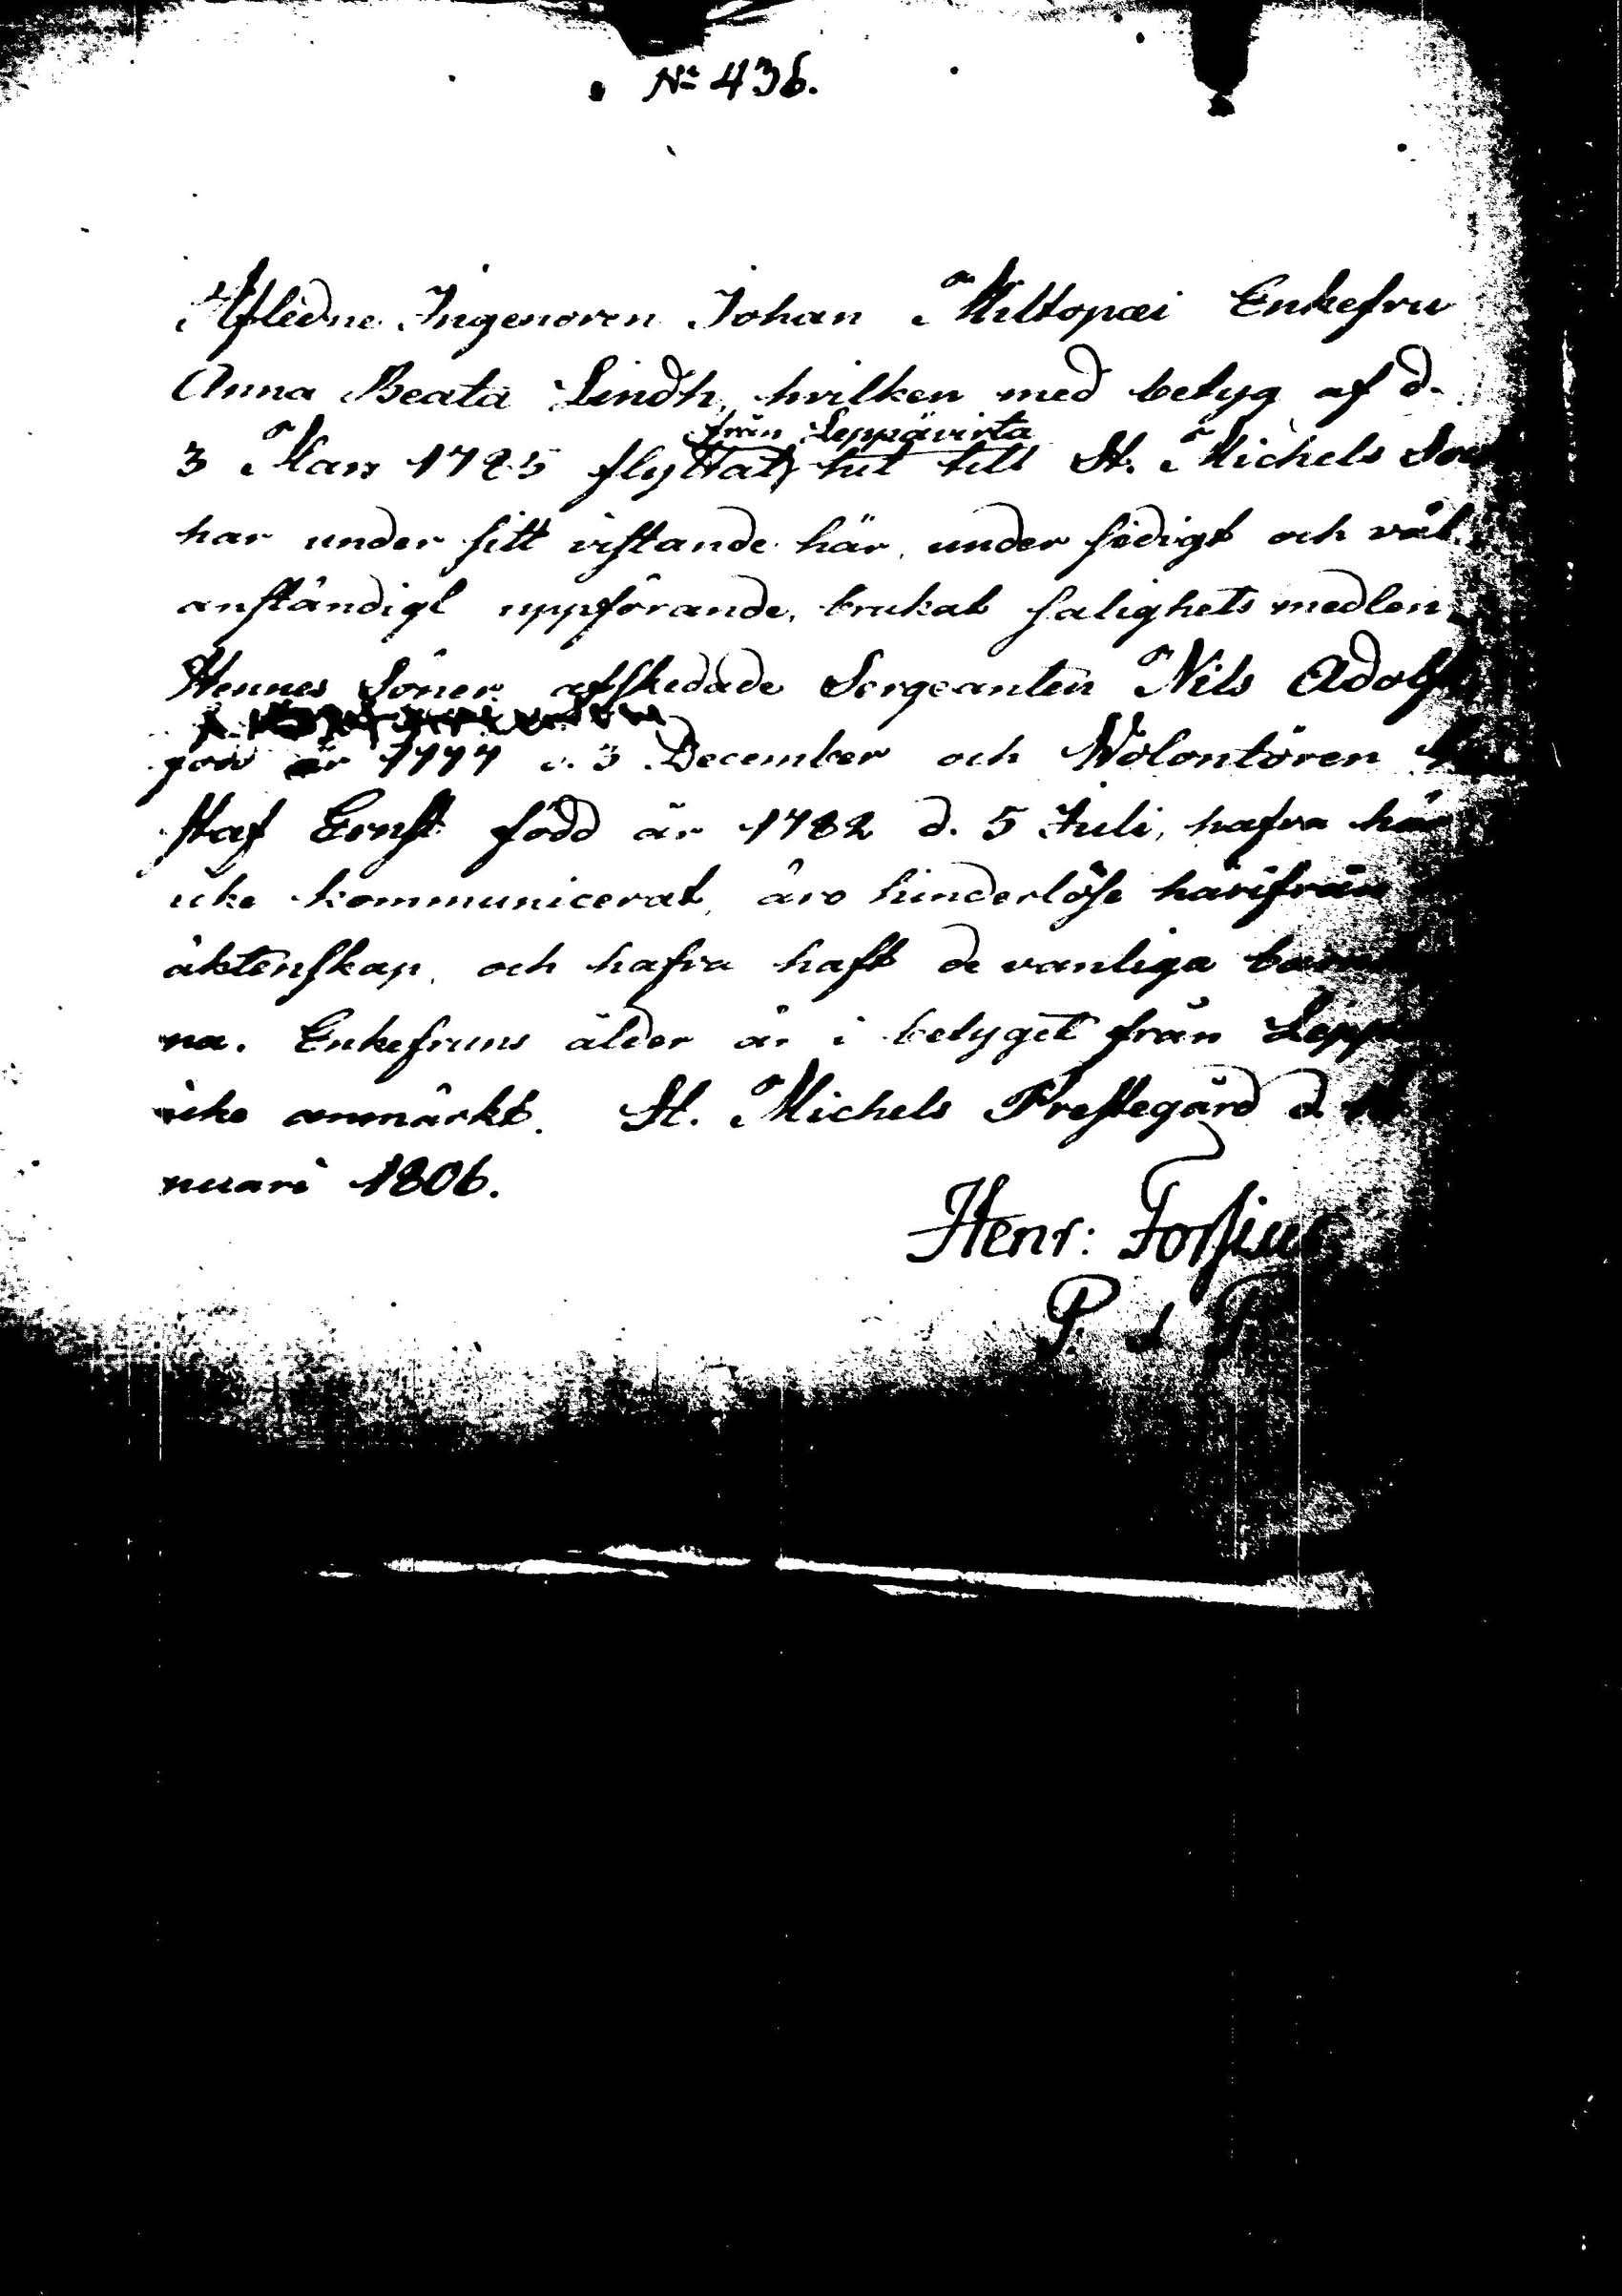 No 436.
Afledne Ingenören Johan Miltopæi Enkefru
Anna Beata Lindh, hvilken med betyg af d.
från Leppävirta
3 Mars 1785 flyttat hit till St. Michels
har under sitt vistande här, under sedigt och väl
anständigt uppförande, brukat salighets medlen
Hennes Söner afskedade Sergeanten Nils Adolf
född år 1777 d. 3 December och Wolontören
staf Ernst född år 1782 d. 5 Juli, hafva här
icke kommunicerat, äro hinderlöse härifrån
äktenskap, och hafva haft de vanliga barn
na. Enkefruns ålder är i betyget från Lepp
icke anmärkt. St. Michels Prestegård d.
nuari 1806.
Henr: Forsius
P.